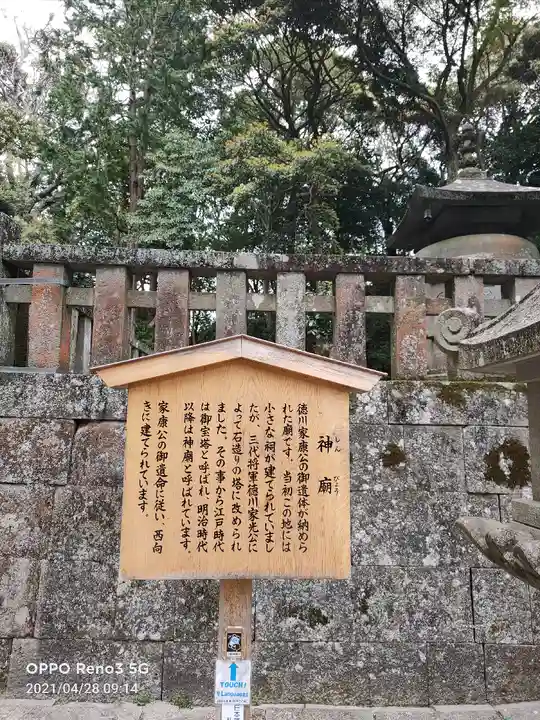 神廟
しんびょう
徳川家康公の御遺体が納めら
れた廟です。当初この地には
小さな祠が建てられていまし
たが、三代将軍徳川家光公に
よって石造りの塔に改められ
ました。その事から江戸時代
は御宝塔と呼ばれ、明治時代
以降は神廟と呼ばれています。
家康公の御遺命に従い、西向
きに建てられています。
TOUCH!
OPPO Reno3 5G
2021/04/28 09:14